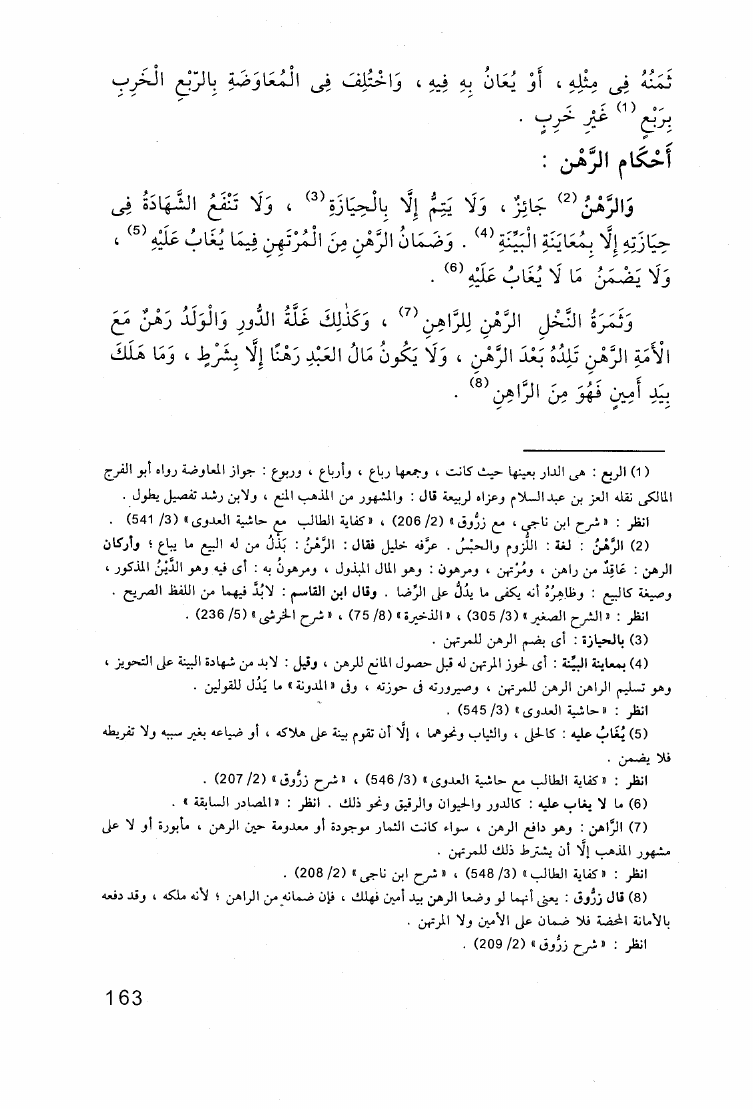 ثَمَنُهُ فِى مِثْلِهِ ، أَوْ يُعَانُ بِهِ فِيهِ ، وَاخْتُلِفَ فِى الْمُعَاوَضَةِ بِالرَّبْعِ الْخَرِبِ
بِرَبْعٍ (1) غَيْرِ خَرِبٍ .
أَحْكَام الرَّهْن :
وَالرَّهْنُ (2) جَائِزٌ ، وَلَا يَتِمُّ إِلَّا بِالْحِيَازَةِ (3) ، وَلَا تَنْفَعُ الشَّهَادَةُ فِى
حِيَازَتِهِ إِلَّا بِمُعَايَنَةِ الْبَيِّنَةِ (4) . وَضَمَانُ الرَّهْنِ مِنَ الْمُرْتَهِنِ فِيمَا يُغَابُ عَلَيْهِ (5) ،
وَلَا يَضْمَنُ مَا لَا يُغَابُ عَلَيْهِ (6) .
وَثَمَرَةُ النَّخْلِ الرَّهْنِ لِلرَّاهِنِ (7) ، وَكَذٰلِكَ غَلَّةُ الدُّورِ وَالْوَلَدُ رَهْنٌ مَعَ
الْأَمَةِ الرَّهْنِ تَلِدُهُ بَعْدَ الرَّهْنِ ، وَلَا يَكُونُ مَالُ العَبْدِ رَهْنًا إِلَّا بِشَرْطٍ ، وَمَا هَلَكَ
بِيَدِ أَمِينٍ فَهُوَ مِنَ الرَّاهِنِ (8) .
(1) الربع : هى الدار بعينها حيث كانت ، وجمعها رباع ، وأرباع ، وربوع : جواز المعاوضة رواه أبو الفرج
المالكى نقله العز بن عبدالسلام وعزاه لربيعة قال : والمشهور من المذهب المنع ، ولابن رشد تفصيل يطول .
انظر : «شرح ابن ناجى ، مع زرُّوق» (2/ 206) ، «كفاية الطالب مع حاشية العدوى» (3/ 541) .
(2) الرَّهْنُ : لغة : اللُّزوم والحبْسُ . عرَّفه خليل فقال : الرَّهْنُ : بَذْلُ من له البيع ما يباع ؛ وأركان
الرهن : عَاقِدٌ من راهن ، ومُرْتهن ، ومرهون : وهو المال المبذول ، ومرهونٌ به : أى فيه وهو الدَّيْنُ المذكور ،
وصيغة كالبيع : وظاهِرُهُ أنه يكفى ما يدُلُّ على الرِّضا . وقال ابن القاسم : لابُدَّ فيهما من اللفظ الصريح .
انظر : «الشرح الصغير» (3/ 305) ، «الذخيرة» (8/ 75) ، «شرح الخرشى» (5/ 236) .
(3) بالحيازة : أى بضم الرهن للمرتهن .
(4) بمعاينة البيِّنة : أى لحوز المرتهن له قبل حصول المانع للرهن ، وقيل : لابد من شهادة البينة على التحويز ،
وهو تسليم الراهن الرهن للمرتهن ، وصيرورته فى حوزته ، وفى «المدونة» ما يَدُل للقولين .
انظر : «حاشية العدوى» (3/ 545) .
(5) يُغَابُ عليه : كالحلى ، والثياب ونحوهما ، إلَّا أن تقوم بينة على هلاكه ، أو ضياعه بغير سببه ولا تفريطه
فلا يضمن .
انظر : «كفاية الطالب مع حاشية العدوى» (3/ 546) ، «شرح زرُّوق» (2/ 207) .
(6) ما لا يغاب عليه : كالدور والحيوان والرقيق ونحو ذلك . انظر : «المصادر السابقة» .
(7) الرَّاهن : وهو دافع الرهن ، سواء كانت الثمار موجودة أو معدومة حين الرهن ، مأبورة أو لا على
مشهور المذهب إلَّا أن يشترط ذلك للمرتهن .
انظر : «كفاية الطالب» (3/ 548) ، «شرح ابن ناجى» (2/ 208) .
(8) قال زرُّوق : يعنى أنهما لو وضعا الرهن بيد أمين فهلك ، فإن ضمانه من الراهن ؛ لأنه ملكه ، وقد دفعه
بالأمانة المحضة فلا ضمان على الأمين ولا المرتهن .
انظر : «شرح زرُّوق» (2/ 209) .
163